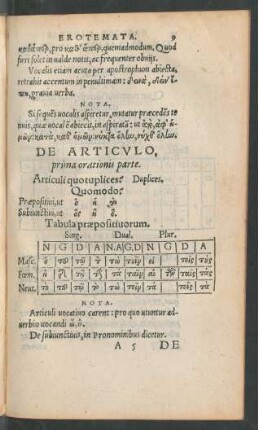 EROTEMATA. 9
pro καθ᾽ ἅπερ, quemadmodum. Quod
fieri solet in valde notis, ac frequenter obvijs.
Vocalis etiam acuta per apostrophum abiecta,
retrahit accentum in penultimam: δεινὰ,
gravia verba.
NOTA.
Si sequēs vocalis aspiretur, mutatur præcedēs te
nuis, quæ vocalē abiecit, in aspiratā: ut
DE ARTICVLO,
prima orationis parte.
Articuli quotuplices? Duplices.
Quomodo?
Præpositivi, ut ὁ ἡ τὸ
Subiunctivi, ut ὃς ἣ ὅ.
Tabula præpositivorum.
Sing. Dual. Plur.
N G D A N.A G.D N G D A
Masc. ὁ τοῦ τῷ τὸν τὼ τοῖν οἱ τῶν τοῖς τοὺς
Fœm. ἡ τῆς τῇ τὴν τὰ ταῖν αἱ τῶν ταῖς τὰς
Neut. τὸ τοῦ τῷ τὸ τὼ τοῖν τὰ τῶν τοῖς τὰ
NOTA.
Articuli vocativo carent: pro quo utuntur ad
verbio vocandi ὦ.
De subiunctivis, in Pronominibus dicetur.
A 5 DE